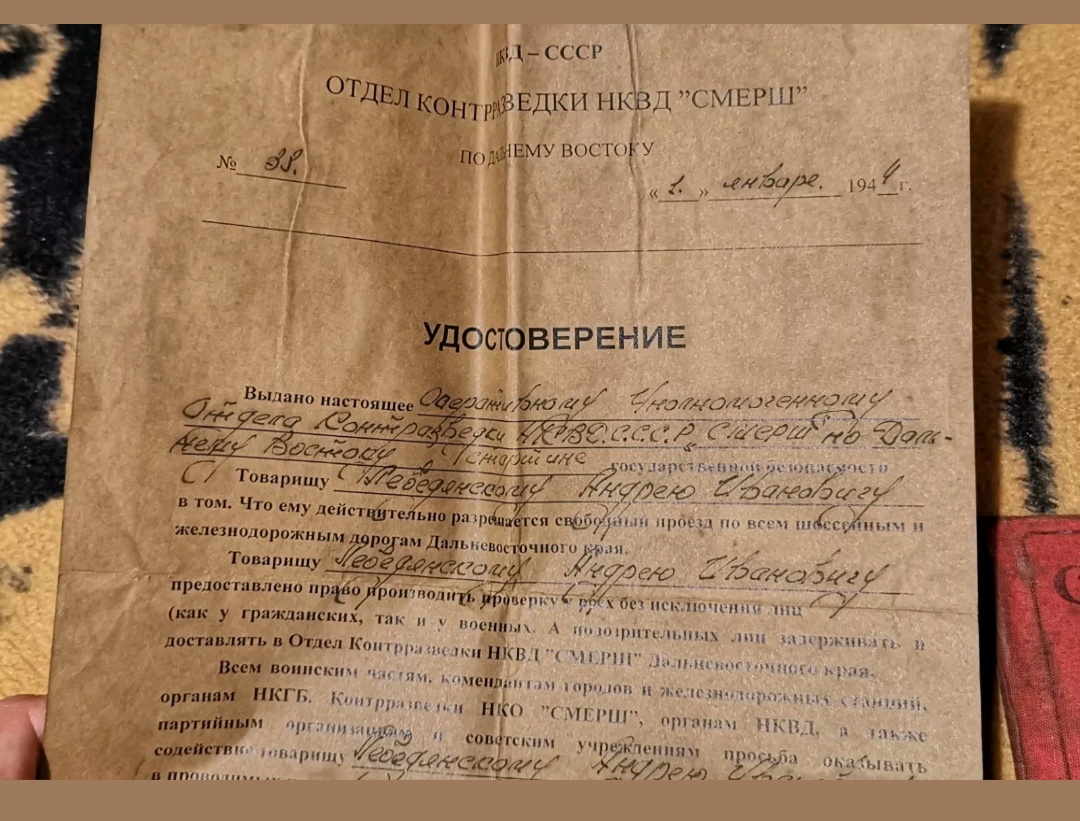 НКВД – СССР
ОТДЕЛ КОНТРРАЗВЕДКИ НКВД "СМЕРШ"
ПО ДАЛЬНЕМУ ВОСТОКУ
№ 38.
« 1. » январе. 1944 г.
УДОСТОВЕРЕНИЕ
Выдано настоящее Оперативному Уполномоченному
Отдела Контразведки НКВД С.С.С.Р. "Смерш" по Даль-
нему Востоку Старшине государственной безопасности
Товарищу Лебедянскому Андрею Ивановичу
в том. Что ему действительно разрешается свободный проезд по всем шоссейным и
железнодорожным дорогам Дальневосточного края.
Товарищу Лебедянскому Андрею Ивановичу
предоставлено право производить проверку у всех без исключения лиц
(как у гражданских, так и у военных. А подозрительных лиц задерживать и
доставлять в Отдел Контрразведки НКВД "СМЕРШ" Дальневосточного края.
Всем воинским частям, комендантам городов и железнодорожных станций,
органам НКГБ. Контрразведки НКО "СМЕРШ", органам НКВД, а также
партийным организациям и советским учреждениям просьба оказывать
содействие товарищу Лебедянскому Андрею
в проводимых
С